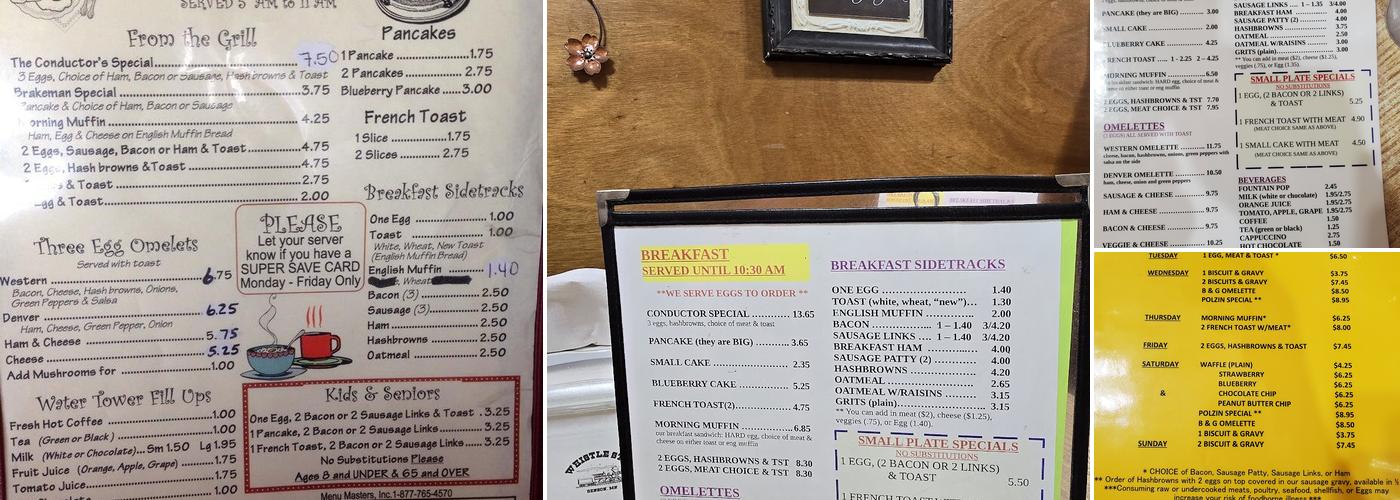 SERVED 5 AM to 11 AM
From the Grill
The Conductor's Special 7.50
3 Eggs, Choice of Ham, Bacon or Sausage, Hash browns & Toast
Brakeman Special 3.75
Pancake & Choice of Ham, Bacon or Sausage
Morning Muffin 4.25
Ham, Egg & Cheese on English Muffin Bread
2 Eggs, Sausage, Bacon or Ham & Toast 4.75
2 Eggs, Hash browns & Toast 4.75
& Toast 2.75
Egg & Toast 2.00
Three Egg Omelets
Served with toast
Western 6.75
Bacon, Cheese, Hash browns, Onions,
Green Peppers & Salsa
Denver 6.25
Ham, Cheese, Green Pepper, Onion
Ham & Cheese 5.75
Cheese 5.25
Add Mushrooms for 1.00
Water Tower Fill Ups
Fresh Hot Coffee 1.00
Tea (Green or Black) 1.00
Milk (White or Chocolate) Sm 1.50 Lg 1.95
Fruit Juice (Orange, Apple, Grape) 1.75
Tomato Juice 1.75
Pancakes
1 Pancake 1.75
2 Pancakes 2.75
Blueberry Pancake 3.00
French Toast
1 Slice 1.75
2 Slices 2.75
Breakfast Sidetracks
One Egg 1.00
Toast 1.00
White, Wheat, New Toast
(English Muffin Bread)
English Muffin 1.40
Wheat
Bacon (3) 2.50
Sausage (3) 2.50
Ham 2.50
Hashbrowns 2.50
Oatmeal 2.50
PLEASE
Let your server
know if you have a
SUPER SAVE CARD
Monday - Friday Only
Kids & Seniors
One Egg, 2 Bacon or 2 Sausage Links & Toast 3.25
1 Pancake, 2 Bacon or 2 Sausage Links 3.25
1 French Toast, 2 Bacon or 2 Sausage Links 3.25
No Substitutions Please
Ages 8 and UNDER & 65 and OVER
Menu Masters, Inc. 1-877-765-4570
BREAKFAST
SERVED UNTIL 10:30 AM
**WE SERVE EGGS TO ORDER **
CONDUCTOR SPECIAL 13.65
3 eggs, hashbrowns, choice of meat & toast
PANCAKE (they are BIG) 3.65
SMALL CAKE 2.35
BLUEBERRY CAKE 5.25
FRENCH TOAST(2) 4.75
MORNING MUFFIN 6.85
our breakfast sandwich: HARD egg, choice of meat &
cheese on either toast or eng muffin
2 EGGS, HASHBROWNS & TST 8.30
2 EGGS, MEAT CHOICE & TST 8.30
OMELETTES
BREAKFAST SIDETRACKS
ONE EGG 1.40
TOAST (white, wheat, "new") 1.30
ENGLISH MUFFIN 2.00
BACON 1 – 1.40 3/4.20
SAUSAGE LINKS 1 – 1.40 3/4.20
BREAKFAST HAM 4.00
SAUSAGE PATTY (2) 4.00
HASHBROWNS 4.20
OATMEAL 2.65
OATMEAL W/RAISINS 3.15
GRITS (plain) 3.15
** You can add in meat ($2), cheese ($1.25),
veggies (.75), or Egg (1.40).
SMALL PLATE SPECIALS
NO SUBSTITUTIONS
1 EGG, (2 BACON OR 2 LINKS)
& TOAST 5.50
1 FRENCH TOAST WITH MEAT
WHISTLE
BENSON, MN
PANCAKE (they are BIG) 3.00
SMALL CAKE 2.00
BLUEBERRY CAKE 4.25
FRENCH TOAST 1 - 2.25 2 – 4.25
MORNING MUFFIN 6.50
2 EGGS, HASHBROWNS & TST 7.70
2 EGGS, MEAT CHOICE & TST 7.95
OMELETTES
(3 EGGS) ALL SERVED WITH TOAST
WESTERN OMELETTE 11.75
cheese, bacon, hashbrowns, onions, green peppers with
salsa on the side
DENVER OMELETTE 10.50
ham, cheese, onion and green peppers
SAUSAGE & CHEESE 9.75
HAM & CHEESE 9.75
BACON & CHEESE 9.75
VEGGIE & CHEESE 10.25
SAUSAGE LINKS 1 – 1.35 3/4.00
BREAKFAST HAM 4.00
SAUSAGE PATTY (2) 4.00
HASHBROWNS 3.75
OATMEAL 2.50
OATMEAL W/RAISINS 3.00
GRITS (plain) 3.00
** You can add in meat ($2), cheese ($1.25),
veggies (.75), or Egg (1.35).
SMALL PLATE SPECIALS
NO SUBSTITUTIONS
1 EGG, (2 BACON OR 2 LINKS)
& TOAST 5.25
1 FRENCH TOAST WITH MEAT 4.90
(MEAT CHOICE SAME AS ABOVE)
1 SMALL CAKE WITH MEAT 4.50
(MEAT CHOICE SAME AS ABOVE)
BEVERAGES
FOUNTAIN POP 2.45
MILK (white or chocolate) 1.95/2.75
ORANGE JUICE 1.95/2.75
TOMATO, APPLE, GRAPE 1.95/2.75
COFFEE 1.50
TEA (green or black) 1.25
CAPPUCCINO 2.75
HOT CHOCOLATE 1.50
TUESDAY 1 EGG, MEAT & TOAST * $6.50
WEDNESDAY 1 BISCUIT & GRAVY $3.75
2 BISCUITS & GRAVY $7.45
B & G OMELETTE $8.50
POLZIN SPECIAL ** $8.95
THURSDAY MORNING MUFFIN* $6.25
2 FRENCH TOAST W/MEAT* $8.00
FRIDAY 2 EGGS, HASHBROWNS & TOAST $7.45
SATURDAY WAFFLE (PLAIN) $4.25
STRAWBERRY $6.25
BLUEBERRY $6.25
& CHOCOLATE CHIP $6.25
PEANUT BUTTER CHIP $6.25
POLZIN SPECIAL ** $8.95
B & G OMELETTE $8.50
1 BISCUIT & GRAVY $3.75
SUNDAY 2 BISCUIT & GRAVY $7.45
* CHOICE of Bacon, Sausage Patty, Sausage Links, or Ham
** Order of Hashbrowns with 2 eggs on top covered in our sausage gravy, available
***Consuming raw or undercooked meats, poultry, seafood, shellfish, or Eggs
increase your risk of foodborne illness ***